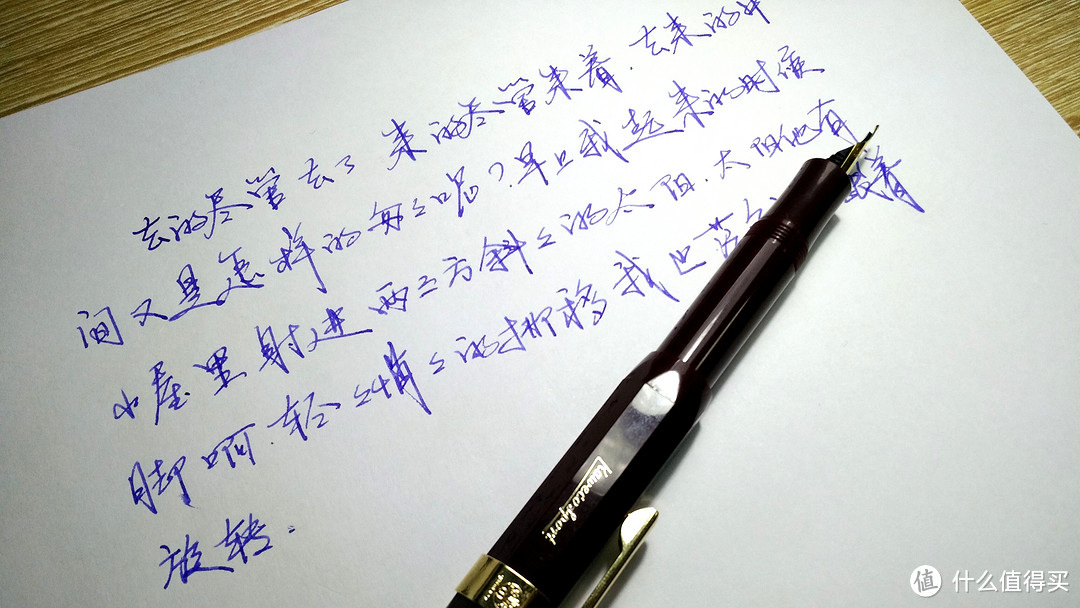 去的尽管去了 来的尽管来着.去来的中
间又是怎样的匆匆呢?早上我起来的时候
小屋里射进两三方斜斜的太阳.太阳他有
脚啊.轻轻悄悄的挪移 我也茫 着
旋转.
Kaweco Sport
值 什么值得买